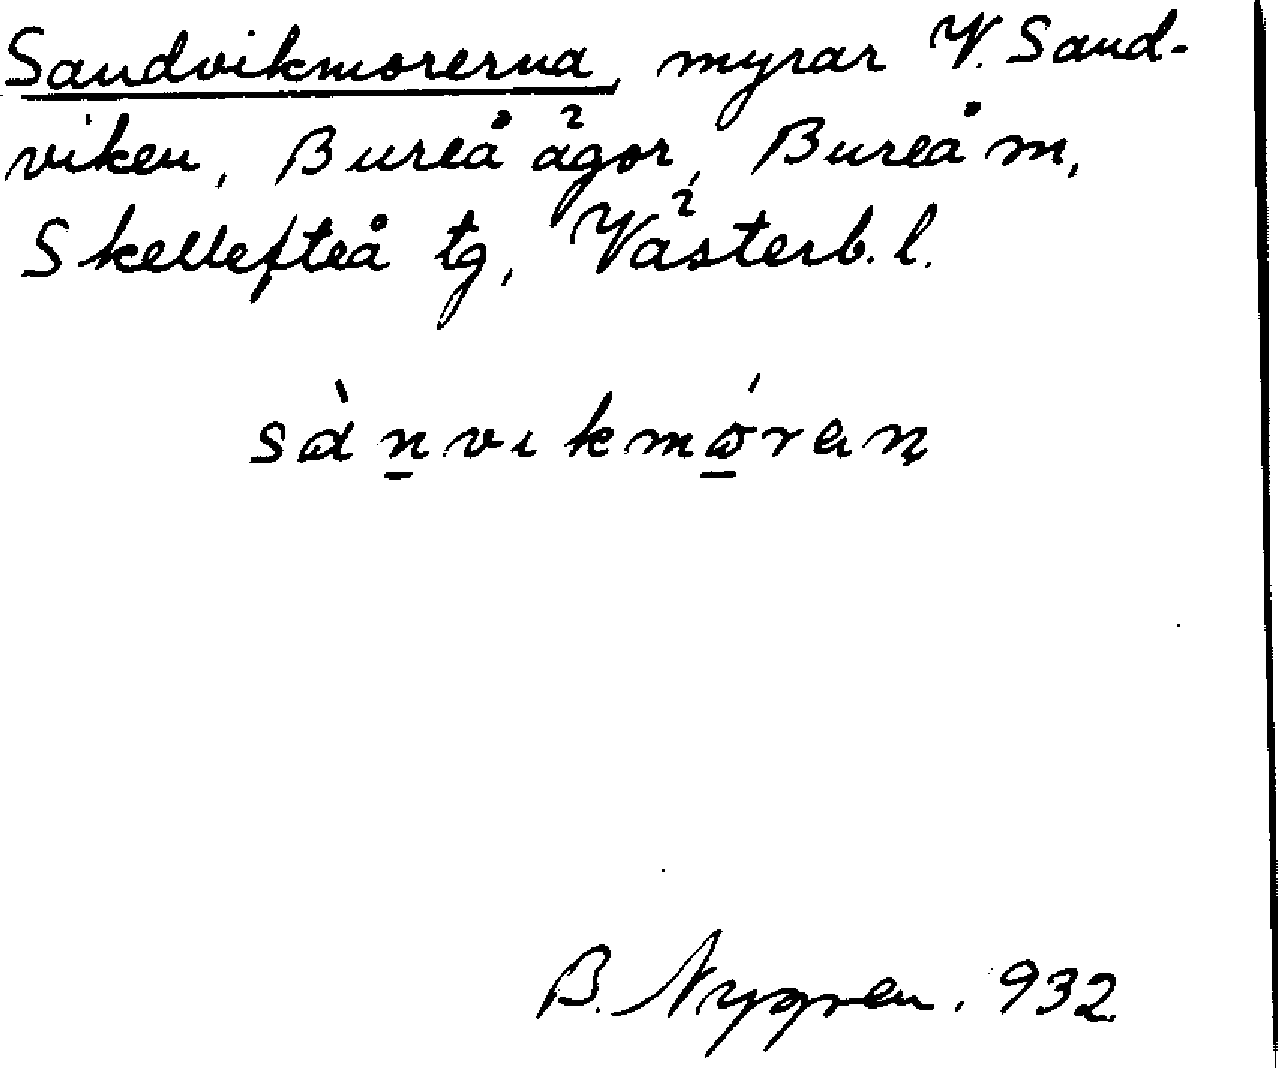 Sandvikmorerna, myrar V. Sand-
viken, Bureå ägor, Bureå m,
Skellefteå tg, Västerb. l.
sànvikmóran
B. Nygren. 932